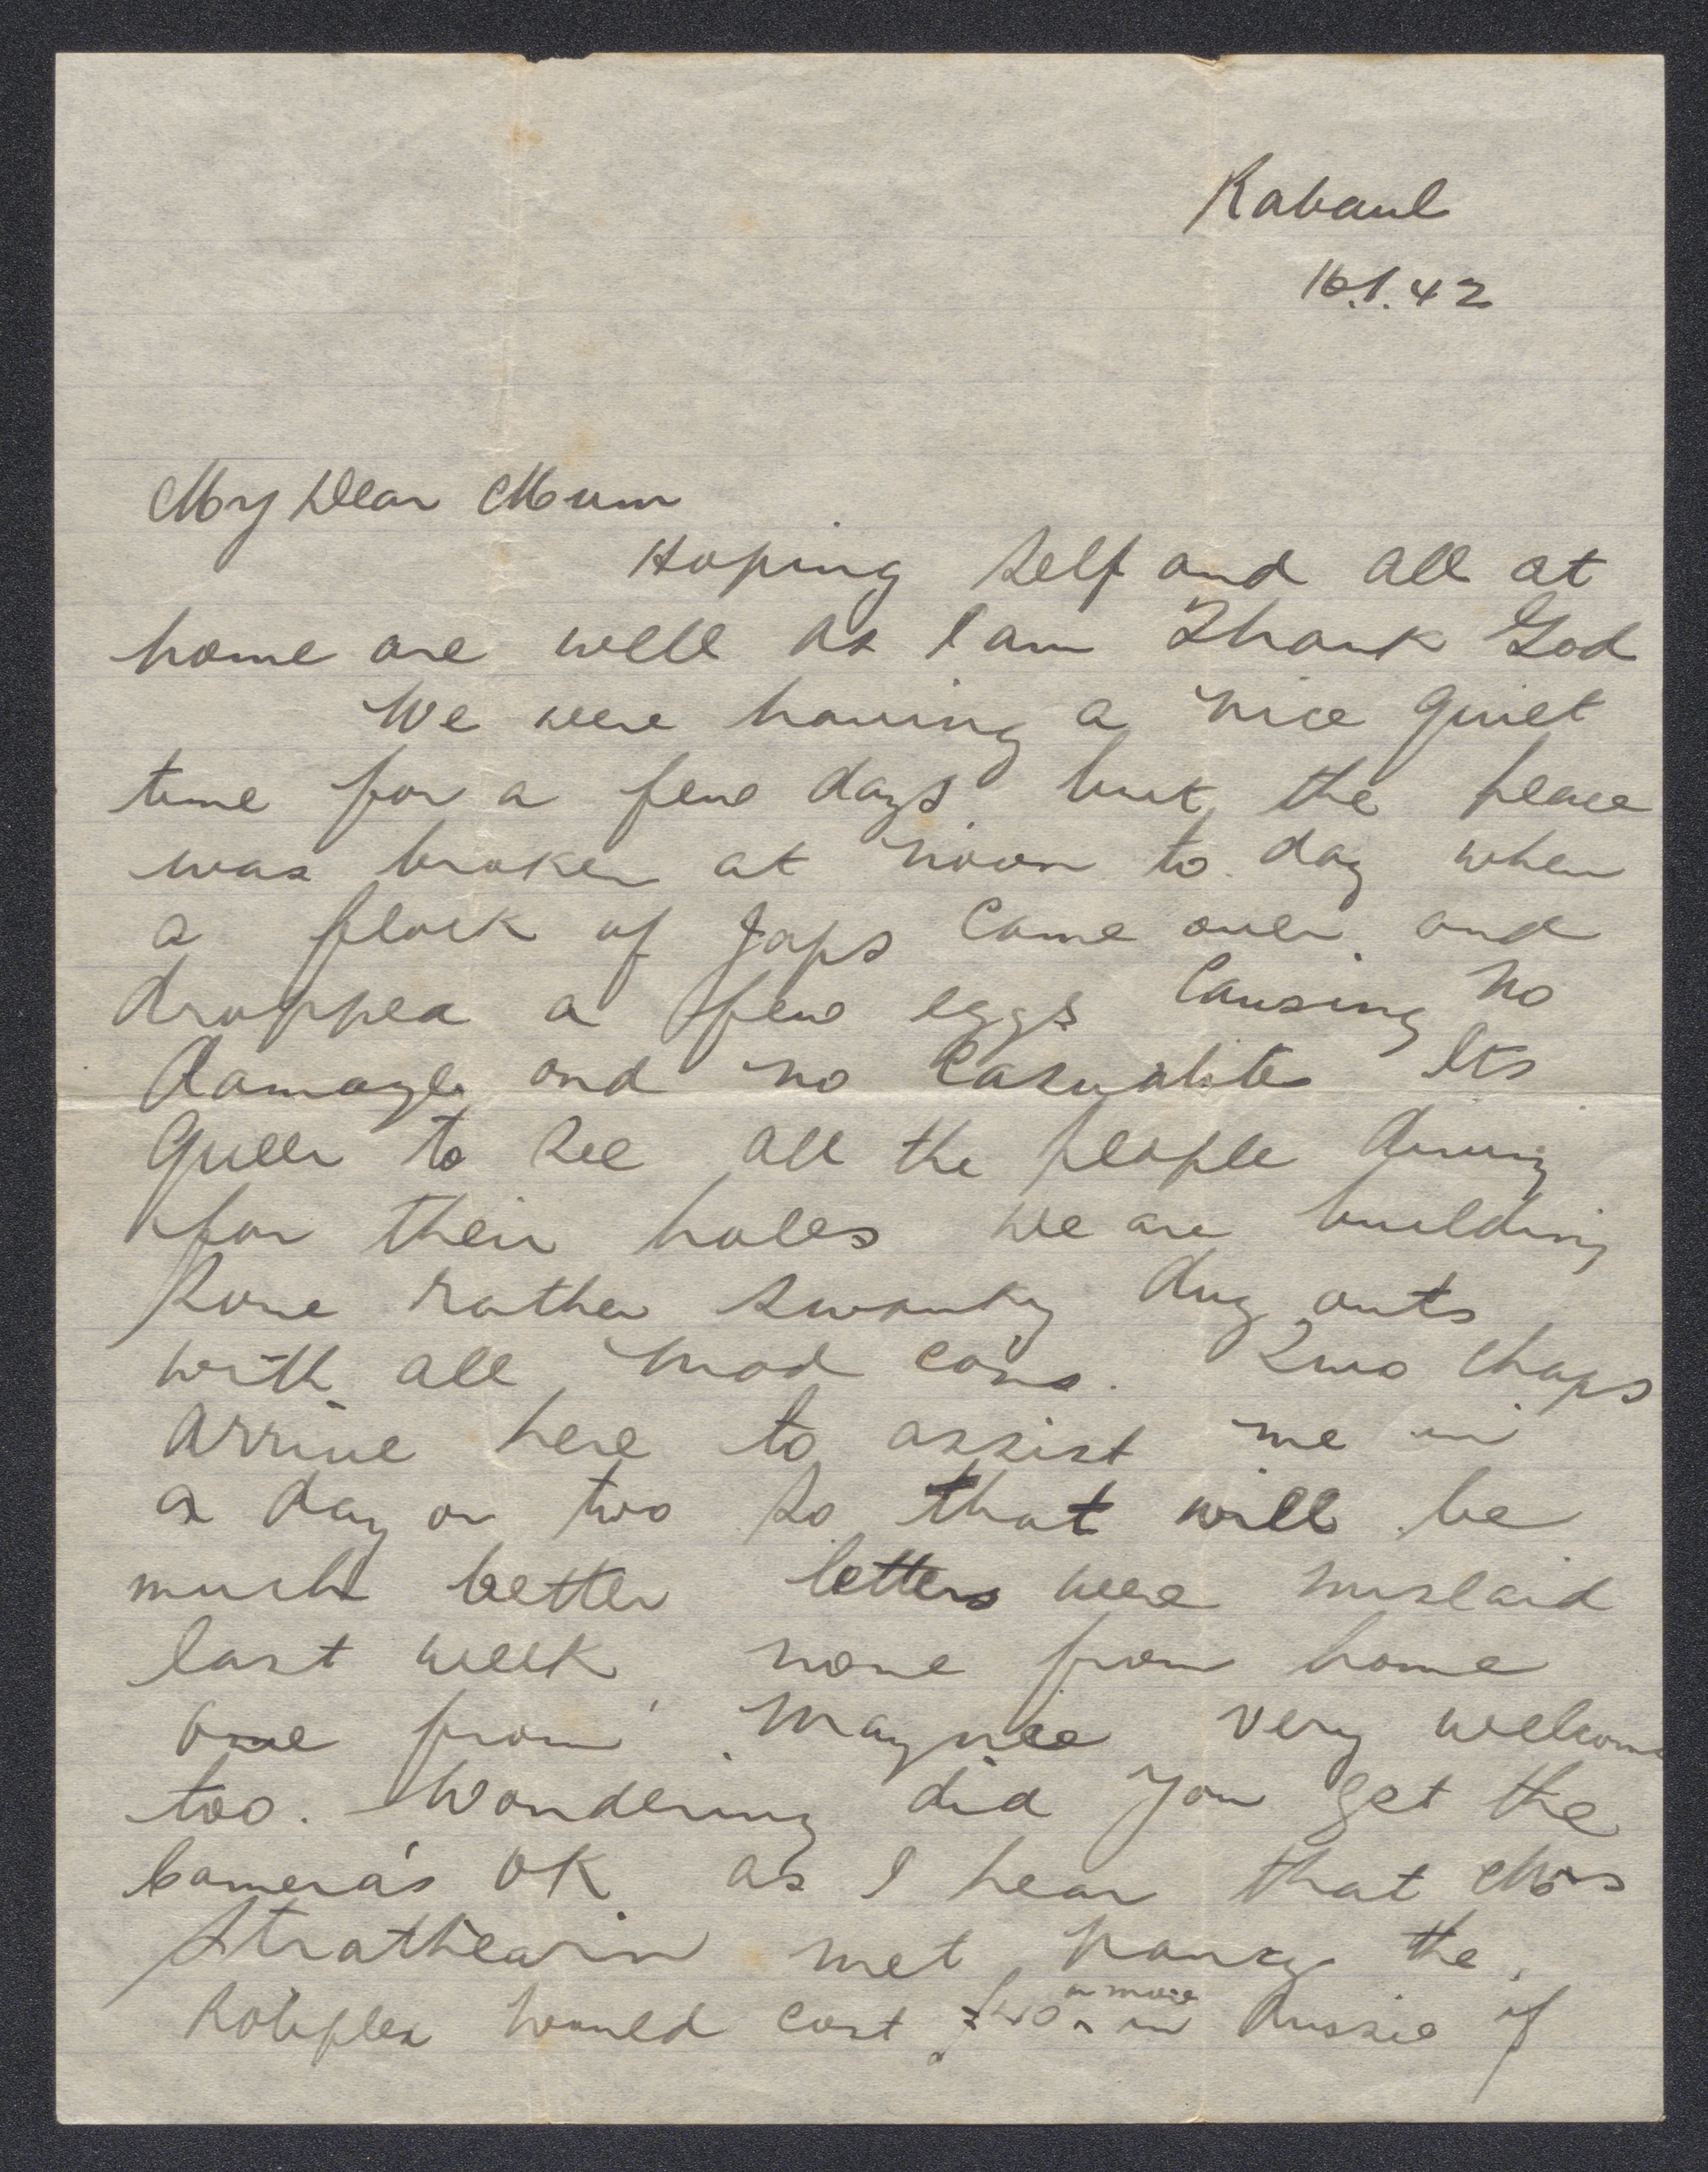 Rabaul
16.1.42
My Dear Mum
Hoping self and all at
home are well as I am Thank God
We were having a nice quiet
time for a few days but the peace
was broken at noon to day when
a flock of Japs came over and
dropped a few eggs causing no
damage and no casualites Its
queer to see all the people diving
for their holes we are building
some rather swanky dug outs
with all mod cons. Two chaps
arrive here to assist me in
a day or two so that will be
much better letters were mislaid
last week none from home
one from Maynee very welcome
too. Wondering did you get the
Camera's OK as I hear that Mrs
Strathearn met the
Roliflex would cost £40 or more in Aussie if